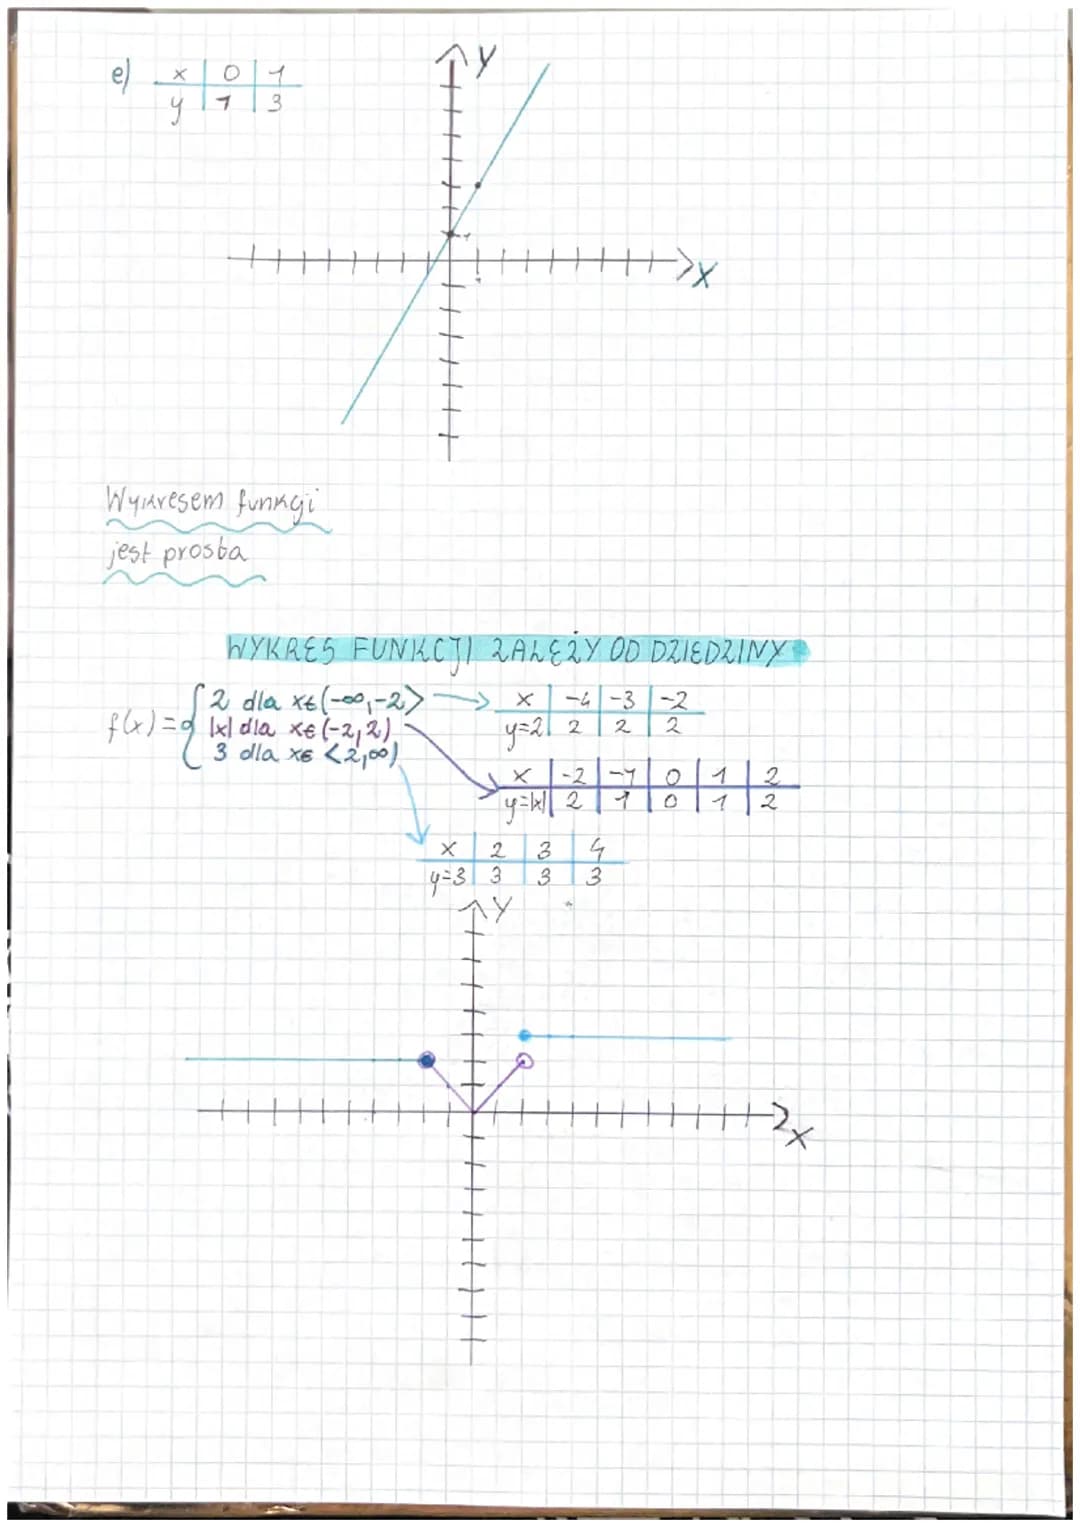 e) x | 0 | 1
y | 1 | 3
Y
X
Wykresem funkcji
jest prosta
WYKRES FUNKCJI ZALEŻY OD DZIEDZINY
f(x) = { 2 dla x∈(-∞,-2>
|x| dla x∈(-2,2)
3 dla x∈<2,∞)
x | -4 | -3 | -2
y=2 | 2 | 2 | 2
x | -2 | -1 | 0 | 1 | 2
y=|x| | 2 | 1 | 0 | 1 | 2
x | 2 | 3 | 4
y=3 | 3 | 3 | 3
Y
X